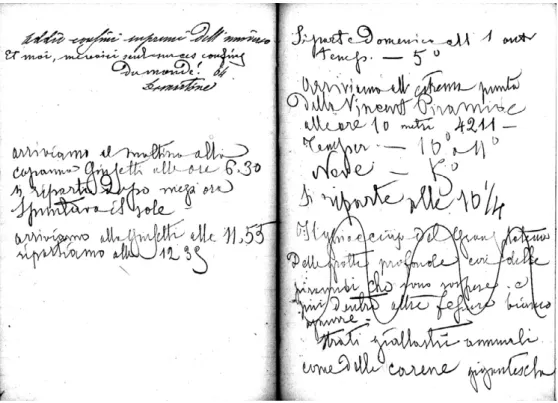 addio confini supremi dell'
Et moi, me voici seul aux confins
du monde!
Lamartine
arriviamo al mattino alla
capanna Gnifetti alle ore 6.30
si riparte dopo mezz'ora
Spuntava il sole
arriviamo alla Gnifetti alle 11.55
ripartiamo alle 12 35
Si parte Domenica all 1 ant
temp. — 5°
arriviamo all'estrema punta
Della Vincent Piramide
alle ore 10 metri 4211 —
Temper. — 10° a 11°
Neve — 5°
Si riparte alle 10 1/4
Il del Gran
Delle grotte profonde delle
piramidi che sono sospese e
più dentro altre bianco
strati giallastri annuali
come delle carene gigantesche